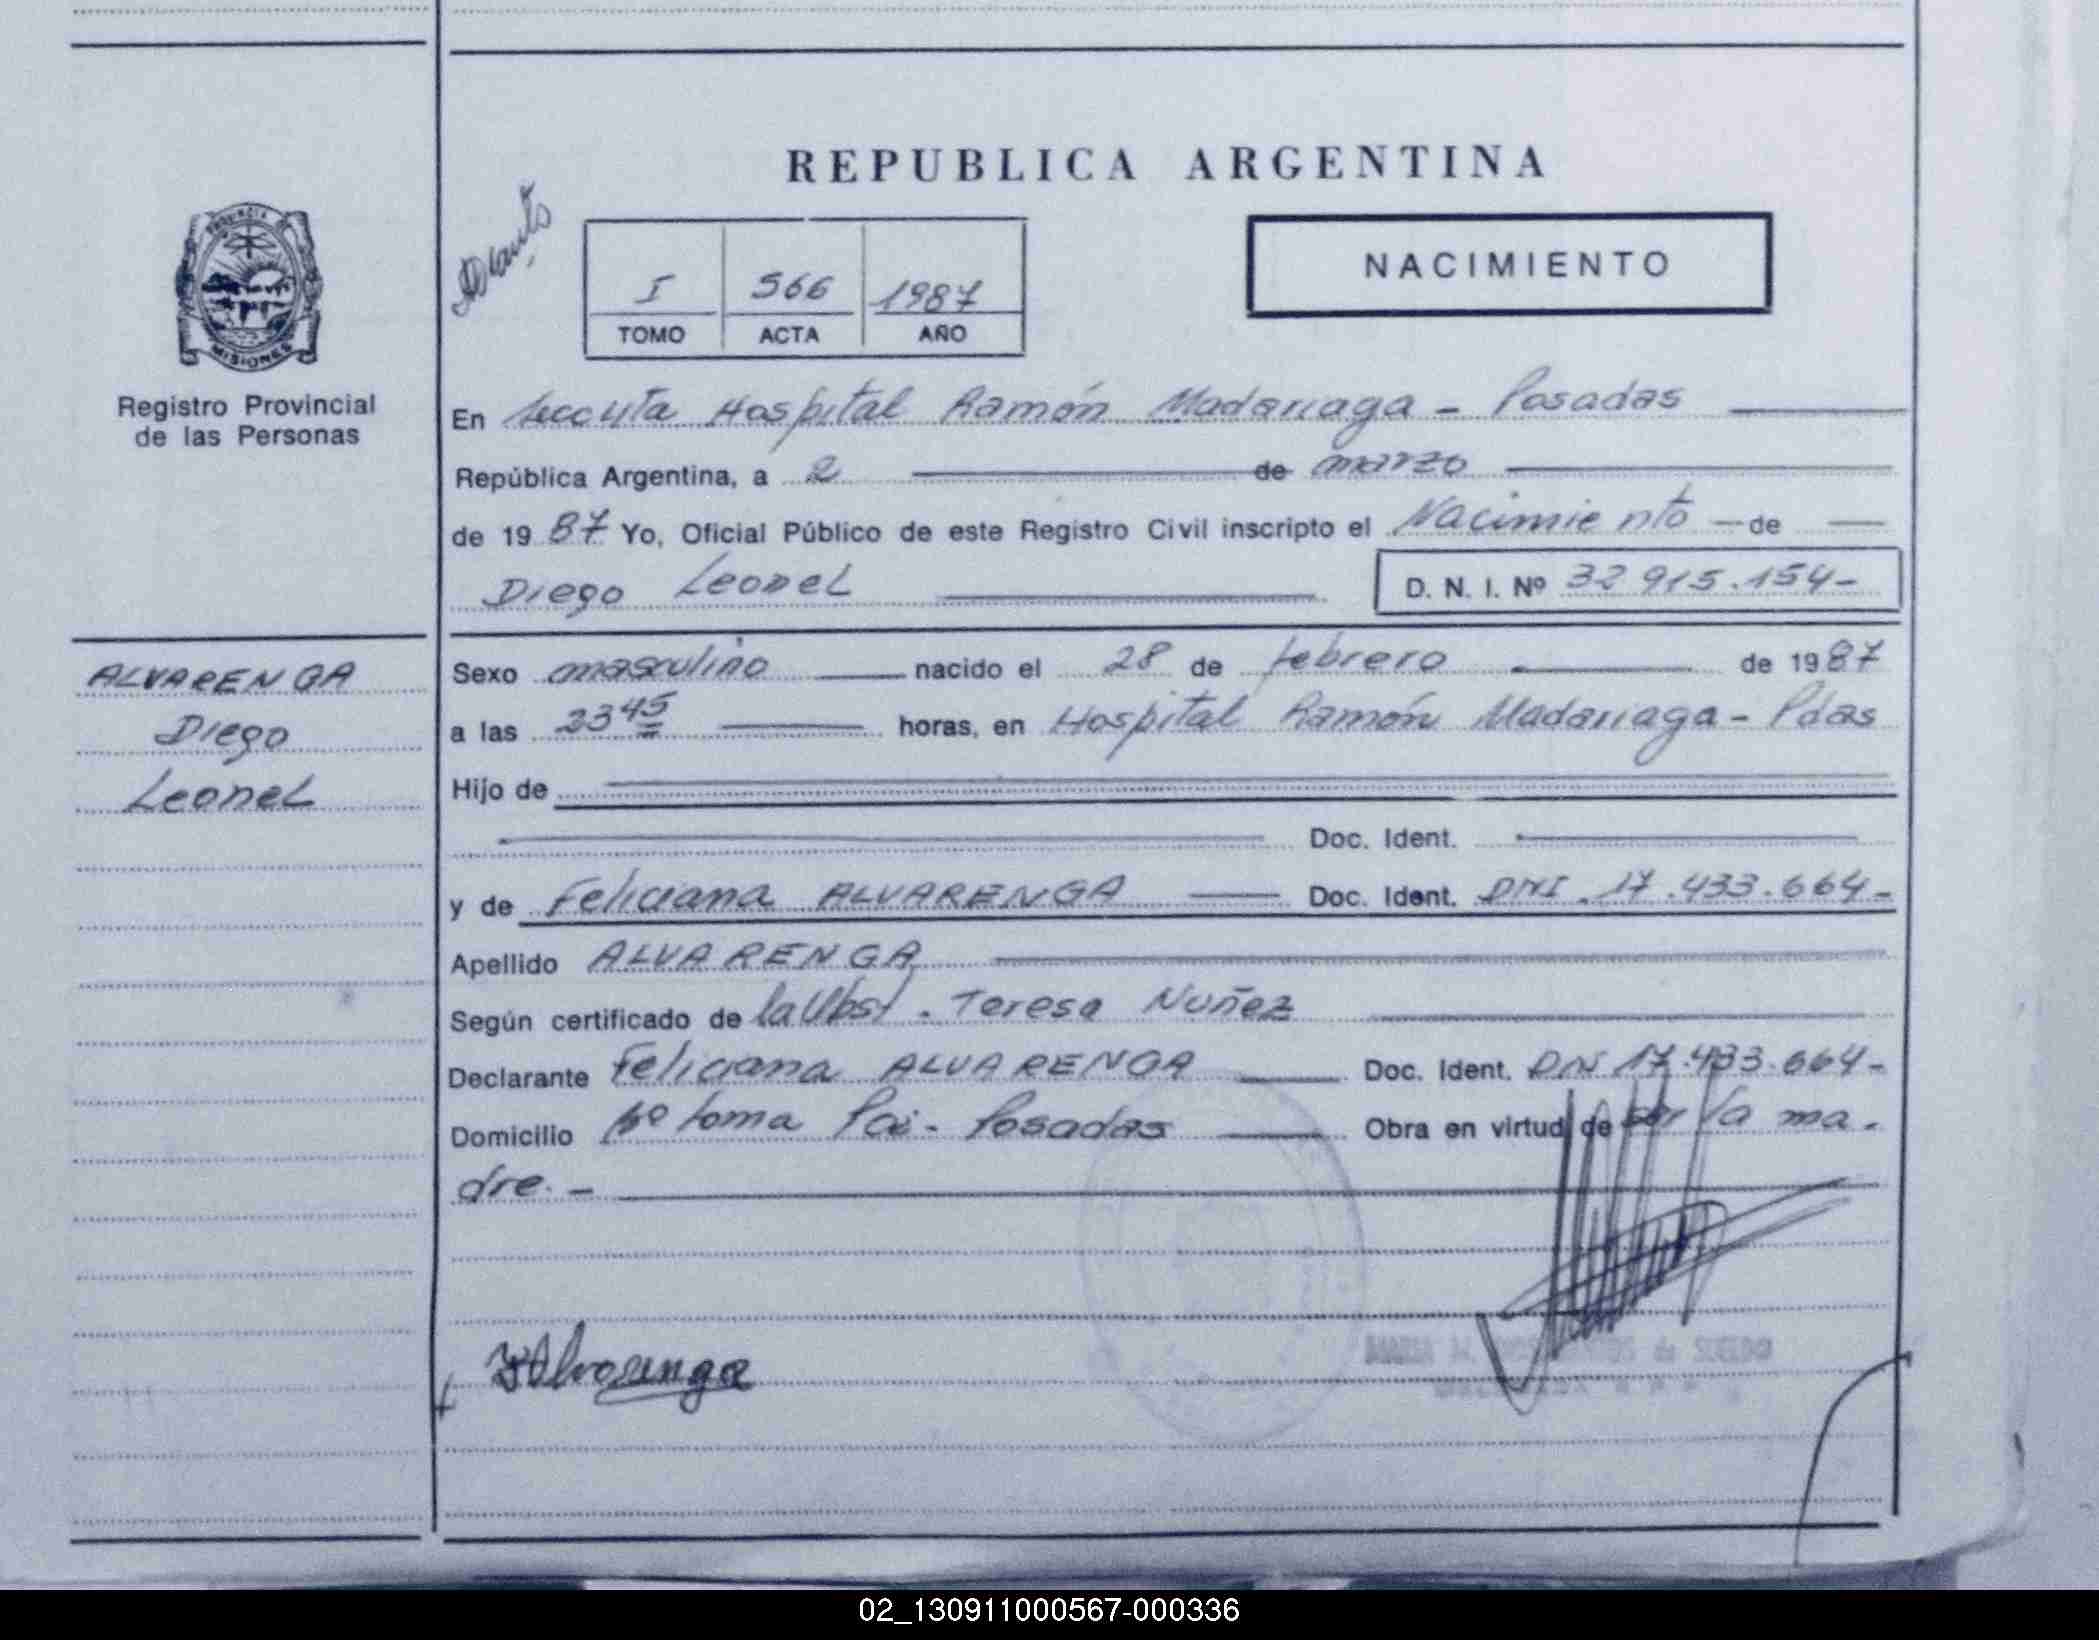 REPUBLICA ARGENTINA
I 566 1987
TOMO ACTA AÑO
NACIMIENTO
PROVINCIA
MISIONES
Registro Provincial
de las Personas
En Hospital Ramón Madariaga - Posadas
República Argentina, a 2 de marzo
de 1987 Yo, Oficial Público de este Registro Civil inscripto el Nacimiento de
Diego Leonel D. N. I. Nº 32 915.154-
ALVARENGA
Diego
Leonel
Sexo masculino nacido el 28 de febrero de 1987
a las 23 45 horas, en Hospital Ramón Madariaga - Pdas
Hijo de
Doc. Ident.
y de Feliciana ALVARENGA Doc. Ident. DNI. 17.433.664-
Apellido ALVARENGA
Según certificado de la Obst. Teresa Nuñez
Declarante Feliciana ALVARENGA Doc. Ident. DNI 17.433.664-
Domicilio Posadas Obra en virtud de ser la ma.
dre. -
Alvarenga
02_130911000567-000336